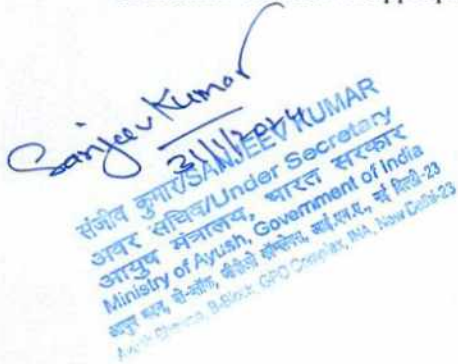 Sanjeev Kumar
संजीव कुमार/SANJEEV KUMAR
अवर सचिव/Under Secretary
आयुष मंत्रालय, भारत सरकार
Ministry of Ayush, Government of India
आयुष भवन, बी-ब्लॉक, जीपीओ कॉम्प्लेक्स, आई.एन.ए., नई दिल्ली-23
Ayush Bhawan, B-Block, GPO Complex, INA, New Delhi-23